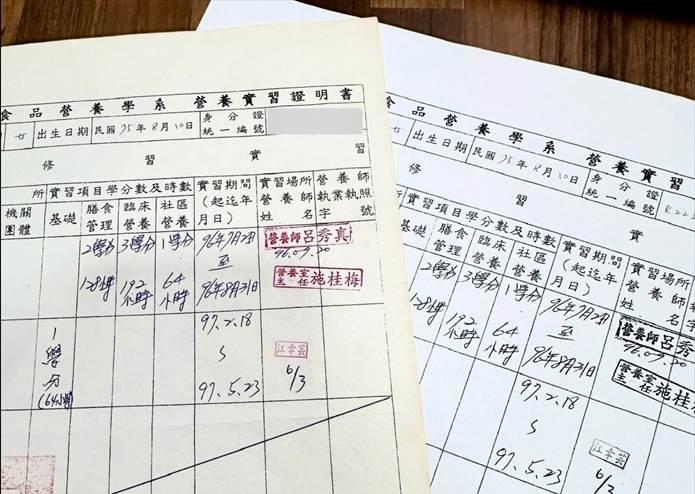 食品營養學系 營養實習證明書
女 出生日期 民國 75年 8月 10日 身分證統一編號
修習實習
所實習項目學分數及時數 實習期間(起迄年月日) 實習場所營養師姓名 營養師執業執照字號
機關團體 基礎 膳食管理 臨床營養 社區營養
2學分 3學分 1學分 96年7月2日 營養師呂秀真
至 96.09.20
128小時 192小時 64小時 96年8月31日 營養室主任施桂梅
1學分(64小時) 97.2.18 江雫芸
97.5.23 6/3
食品營養學系 營養實習
女 出生日期 民國 75年 8月 10日 身分證統一編號 R22
修習實
實習項目學分數及時數 實習期間(起迄年月日) 實習場所營養師姓名 執字
基礎 膳食管理 臨床營養 社區營養
2學分 3學分 1學分 96年7月2日 營養師呂秀真
至 96.09.20
128小時 192小時 64小時 96年8月31日 營養室主任施桂梅
97.2.18
97.5.23 6/3